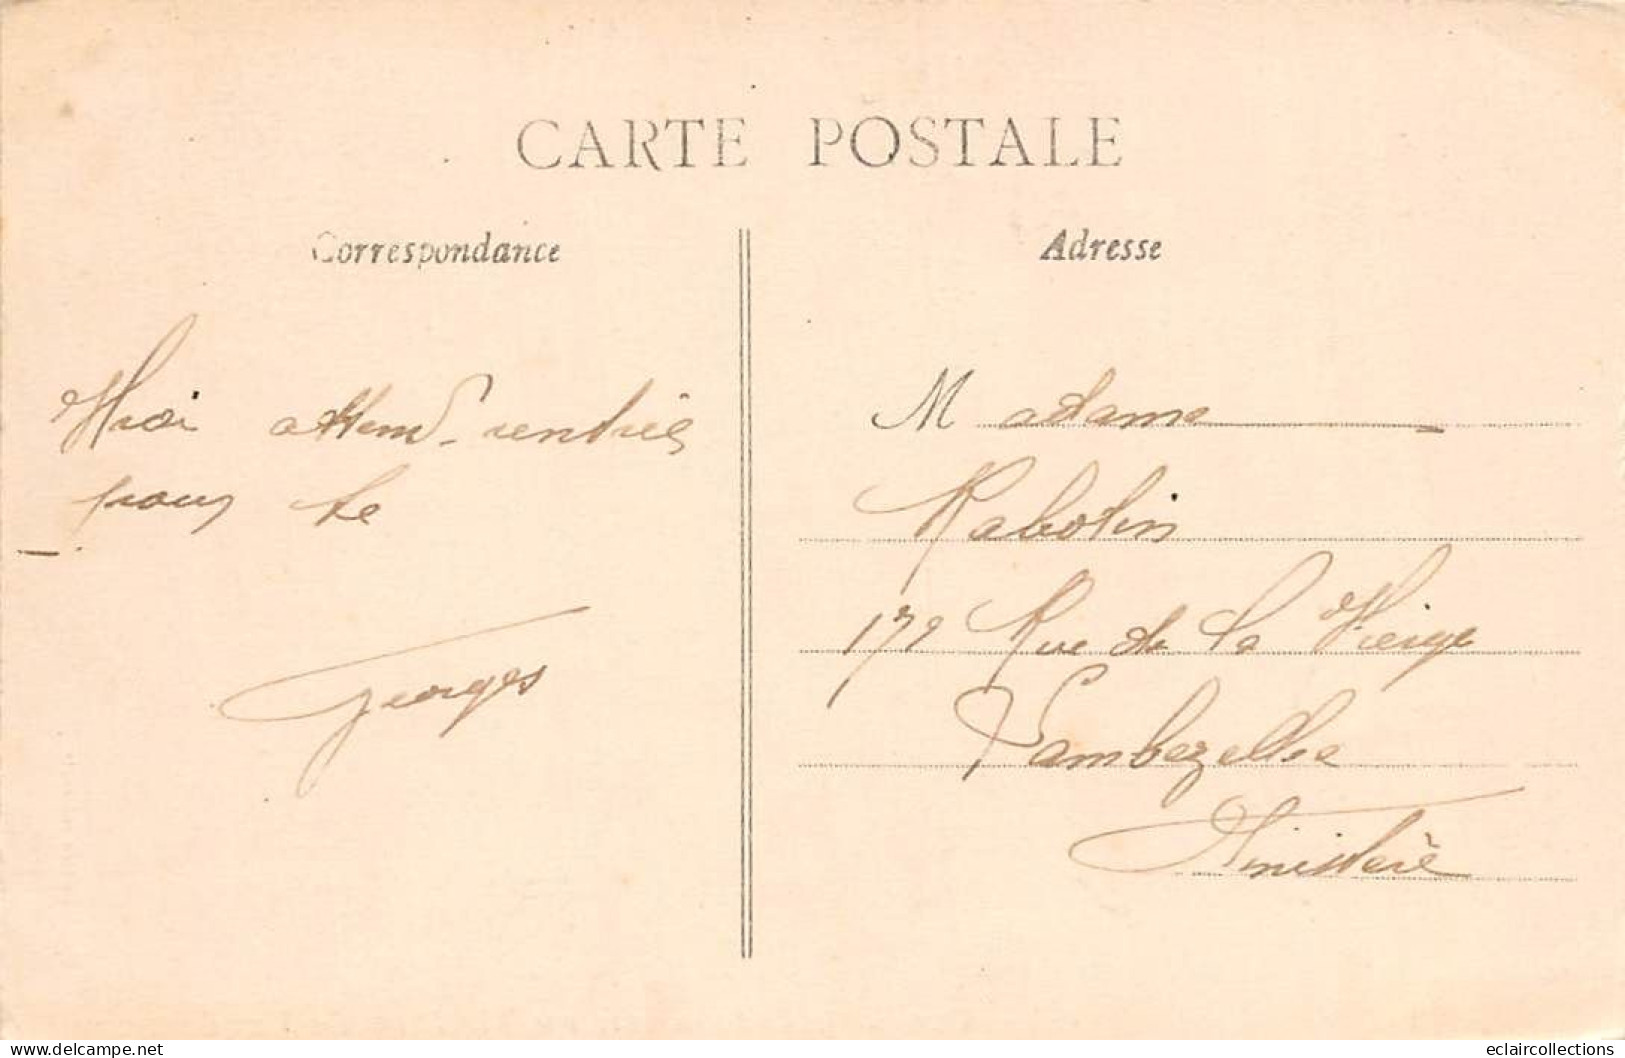 CARTE POSTALE
Correspondance
Adresse
attend rentrée
pour le
Georges
Madame
Rabotin
172 Rue de la Vierge
Lambezellec
Finistère
delcampe.net
eclaircollections